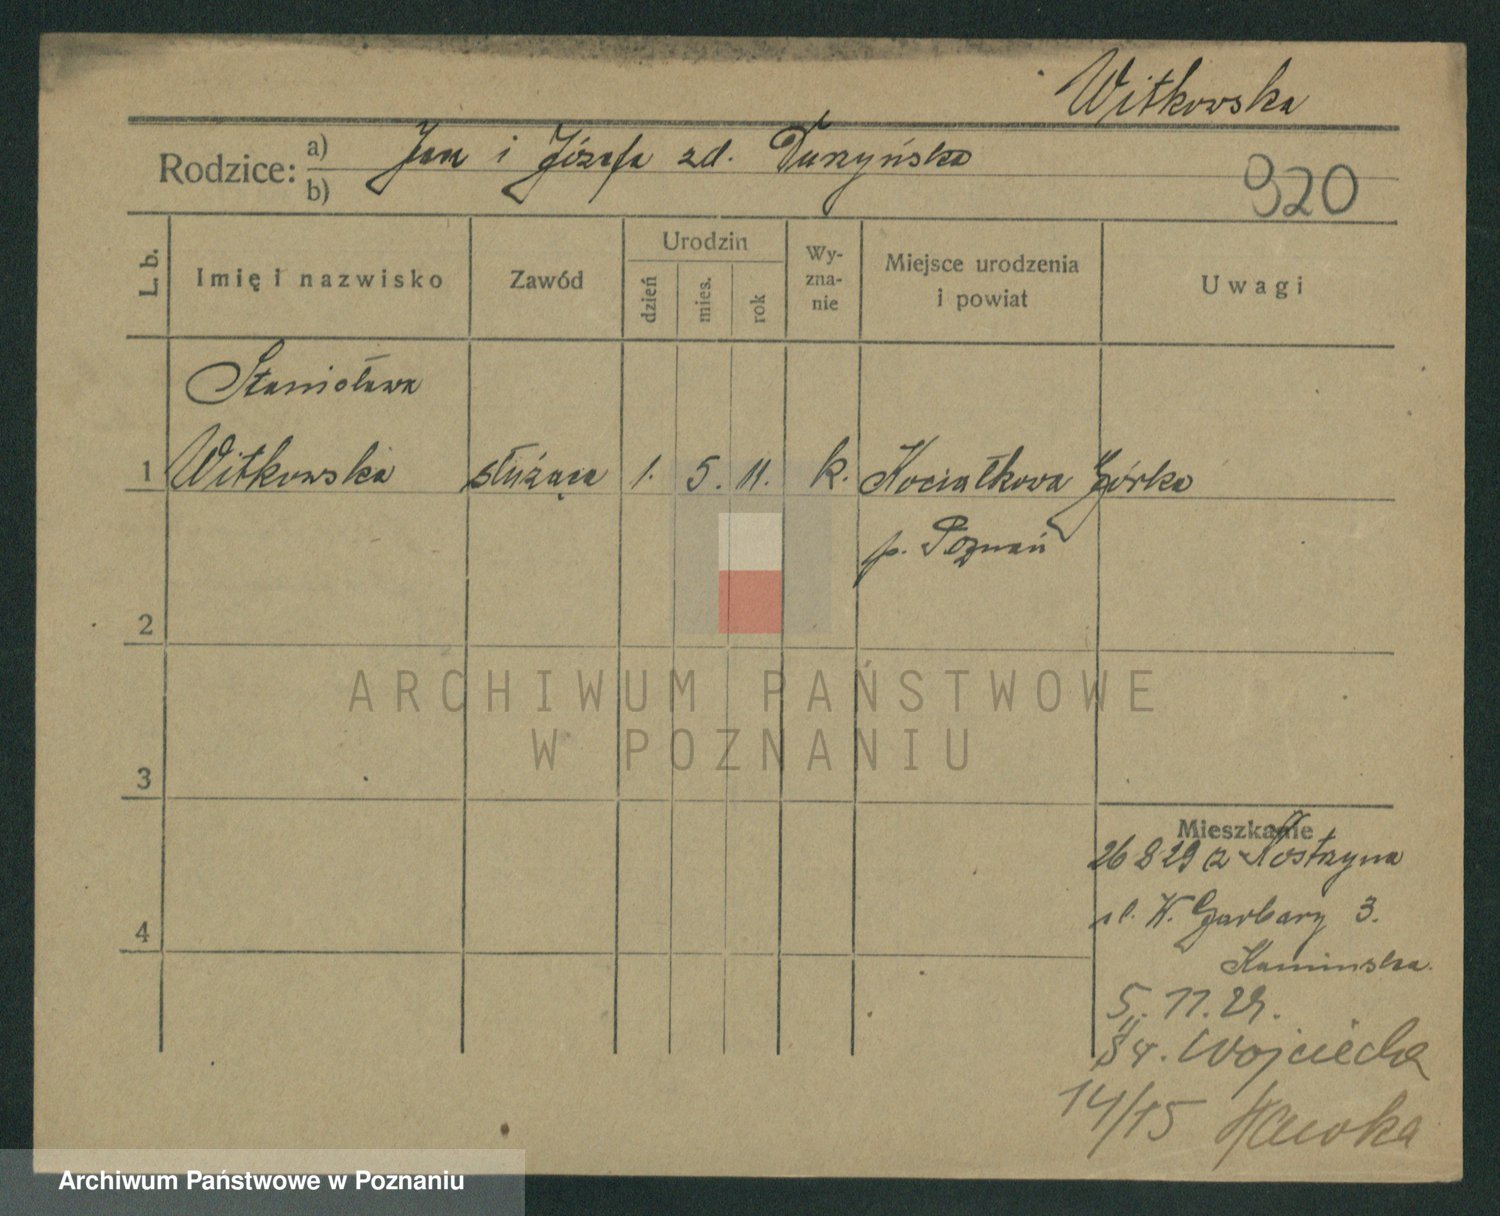 Witkowska
Rodzice: a) Jan i Józefa zd. Tuszyńska
b)
920
L. b.
Imię i nazwisko
Zawód
Urodzin
dzień
mies.
rok
Wy-
zna-
nie
Miejsce urodzenia
i powiat
Uwagi
Stanisława
1 Witkowska służąca 1. 5. 11. k. Kociałkowa Górka
p. Poznań
2
3
4
Mieszkanie
26 8 29 z Kostrzyna
ul. W. Garbary 3.
Kaminska.
5. 11. 29.
Św. Wojciecha
14/15
ARCHIWUM PAŃSTWOWE
W POZNANIU
Archiwum Państwowe w Poznaniu